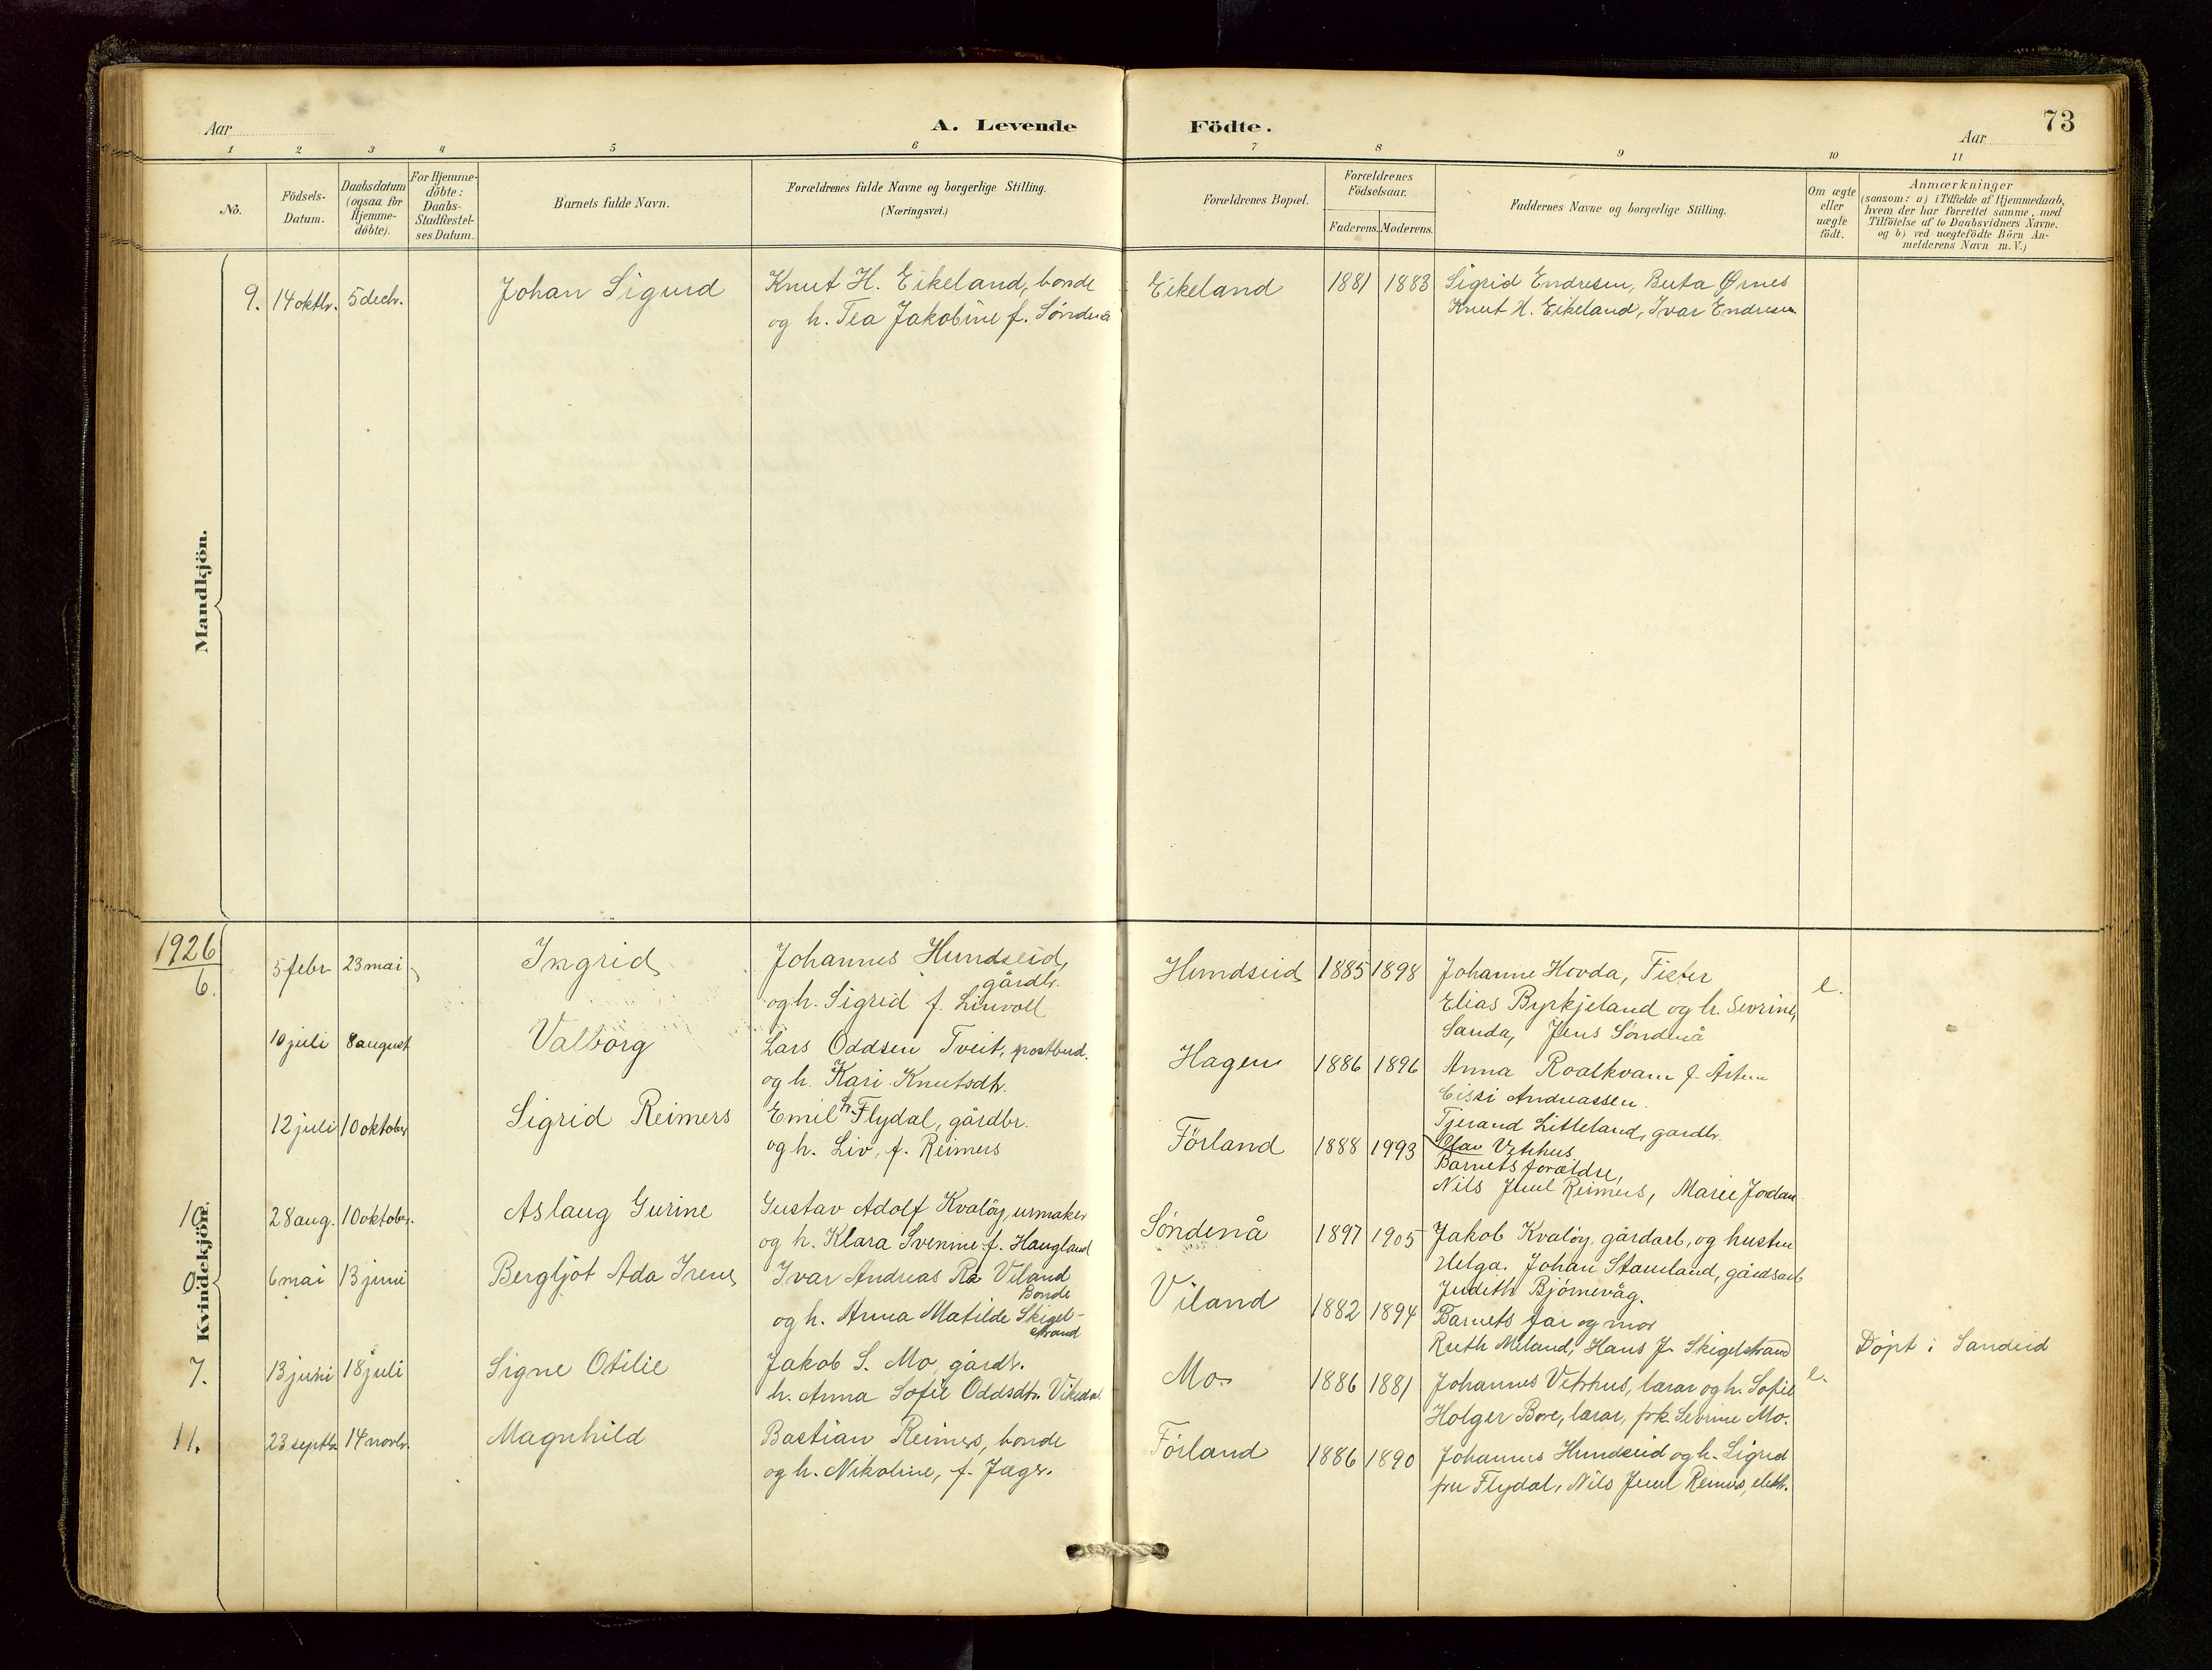 Aar
A. Levende
Födte.
Aar
73
1 2 3 4 5 6 7 8 9 10 11
No.
Födsels-Datum.
Daabsdatum (ogsaa for Hjemme-döbte).
For Hjemme-döbte: Daabs-Stadfæstel-ses Datum.
Barnets fulde Navn.
Forældrenes fulde Navne og borgerlige Stilling.
(Næringsvei.)
Forældrenes Bopæl.
Forældrenes Födselsaar.
Faderens. Moderens.
Faddernes Navne og borgerlige Stilling.
Om ægte eller uægte födt.
Anmærkninger
(saasom: a) i Tilfælde af Hjemmedaab,
hvem der har forrettet samme, med
Tilföielse af to Daabsvidners Navne.
og b) ved uægtefödte Börn An-
melderens Navn m. V.)
Mandkjön.
9. 14 oktbr. 5 decbr. Johan Sigurd Knut H. Eikeland, bonde Eikeland 1881 1883 Sigrid Endresen, Berta Ørnes
og h. Tea Jakobine f. Søndenå Knut H. Eikeland, Ivar Endresen
1926
Kvindekjön.
6. 5 febr 23 mai Ingrid Johannes Hundseid, Hundseid 1885 1898 Johanne Hovda, Fister e.
gårdbr.
og h. Sigrid f. Linvoll Elias Byrkjeland og h. Sevrine,
Sanda, Jens Søndenå
10 juli 8 august Valborg Lars Oddsen Tveit, postbud. Hagen 1886 1896 Anna Roalkvam f.
og h. Kari Knutsdtr. Andreassen.
Tjerand Litleland, gardbr.
Olav Vetrhus
12 juli 10 oktober Sigrid Reimers Emil H. Flydal, gårdbr. Förland 1888 1993 Barnets forældre,
og h. Liv, f. Reimers Nils Juul Reimers, Marie Jordan
10. 28 aug. 10 oktober. Aslaug Gurine Gustav Adolf Kvaløy, urmaker Søndenå 1897 1905 Jakob Kvaløy, gårdarb, og hustru
og h. Klara Svenine f. Haugland Helga. Johan Stamland, gårdsarb
Judith Bjørnevåg.
0. 6 mai 13 juni Bergljot Ada Irene Ivar Andreas Ra Viland Viland 1882 1894 Barnets far og mor
Bonde
og h. Anna Matilde Skigel-
strand Ruth Meland, Hans J. Skigelstrand Döpt i Sandeid
7. 13 juni 18 juli Signe Otilie Jakob S. Mo, gårdbr. Mo. 1886 1881 Johannes Vetrhus, lærar og h. Sofie e.
h. Anna Sofie Oddsdtr. Vikedal Holger Bore, lærar, frk. Sevrine Mo.
11. 23 septbr. 14 novbr. Magnhild Bastian Reimers, bonde Förland 1886 1890 Johannes Hundseid og h. Sigrid
og h. Nikoline, f. Jæger. fru Flydal, Nils Juul Reimers, elektr.